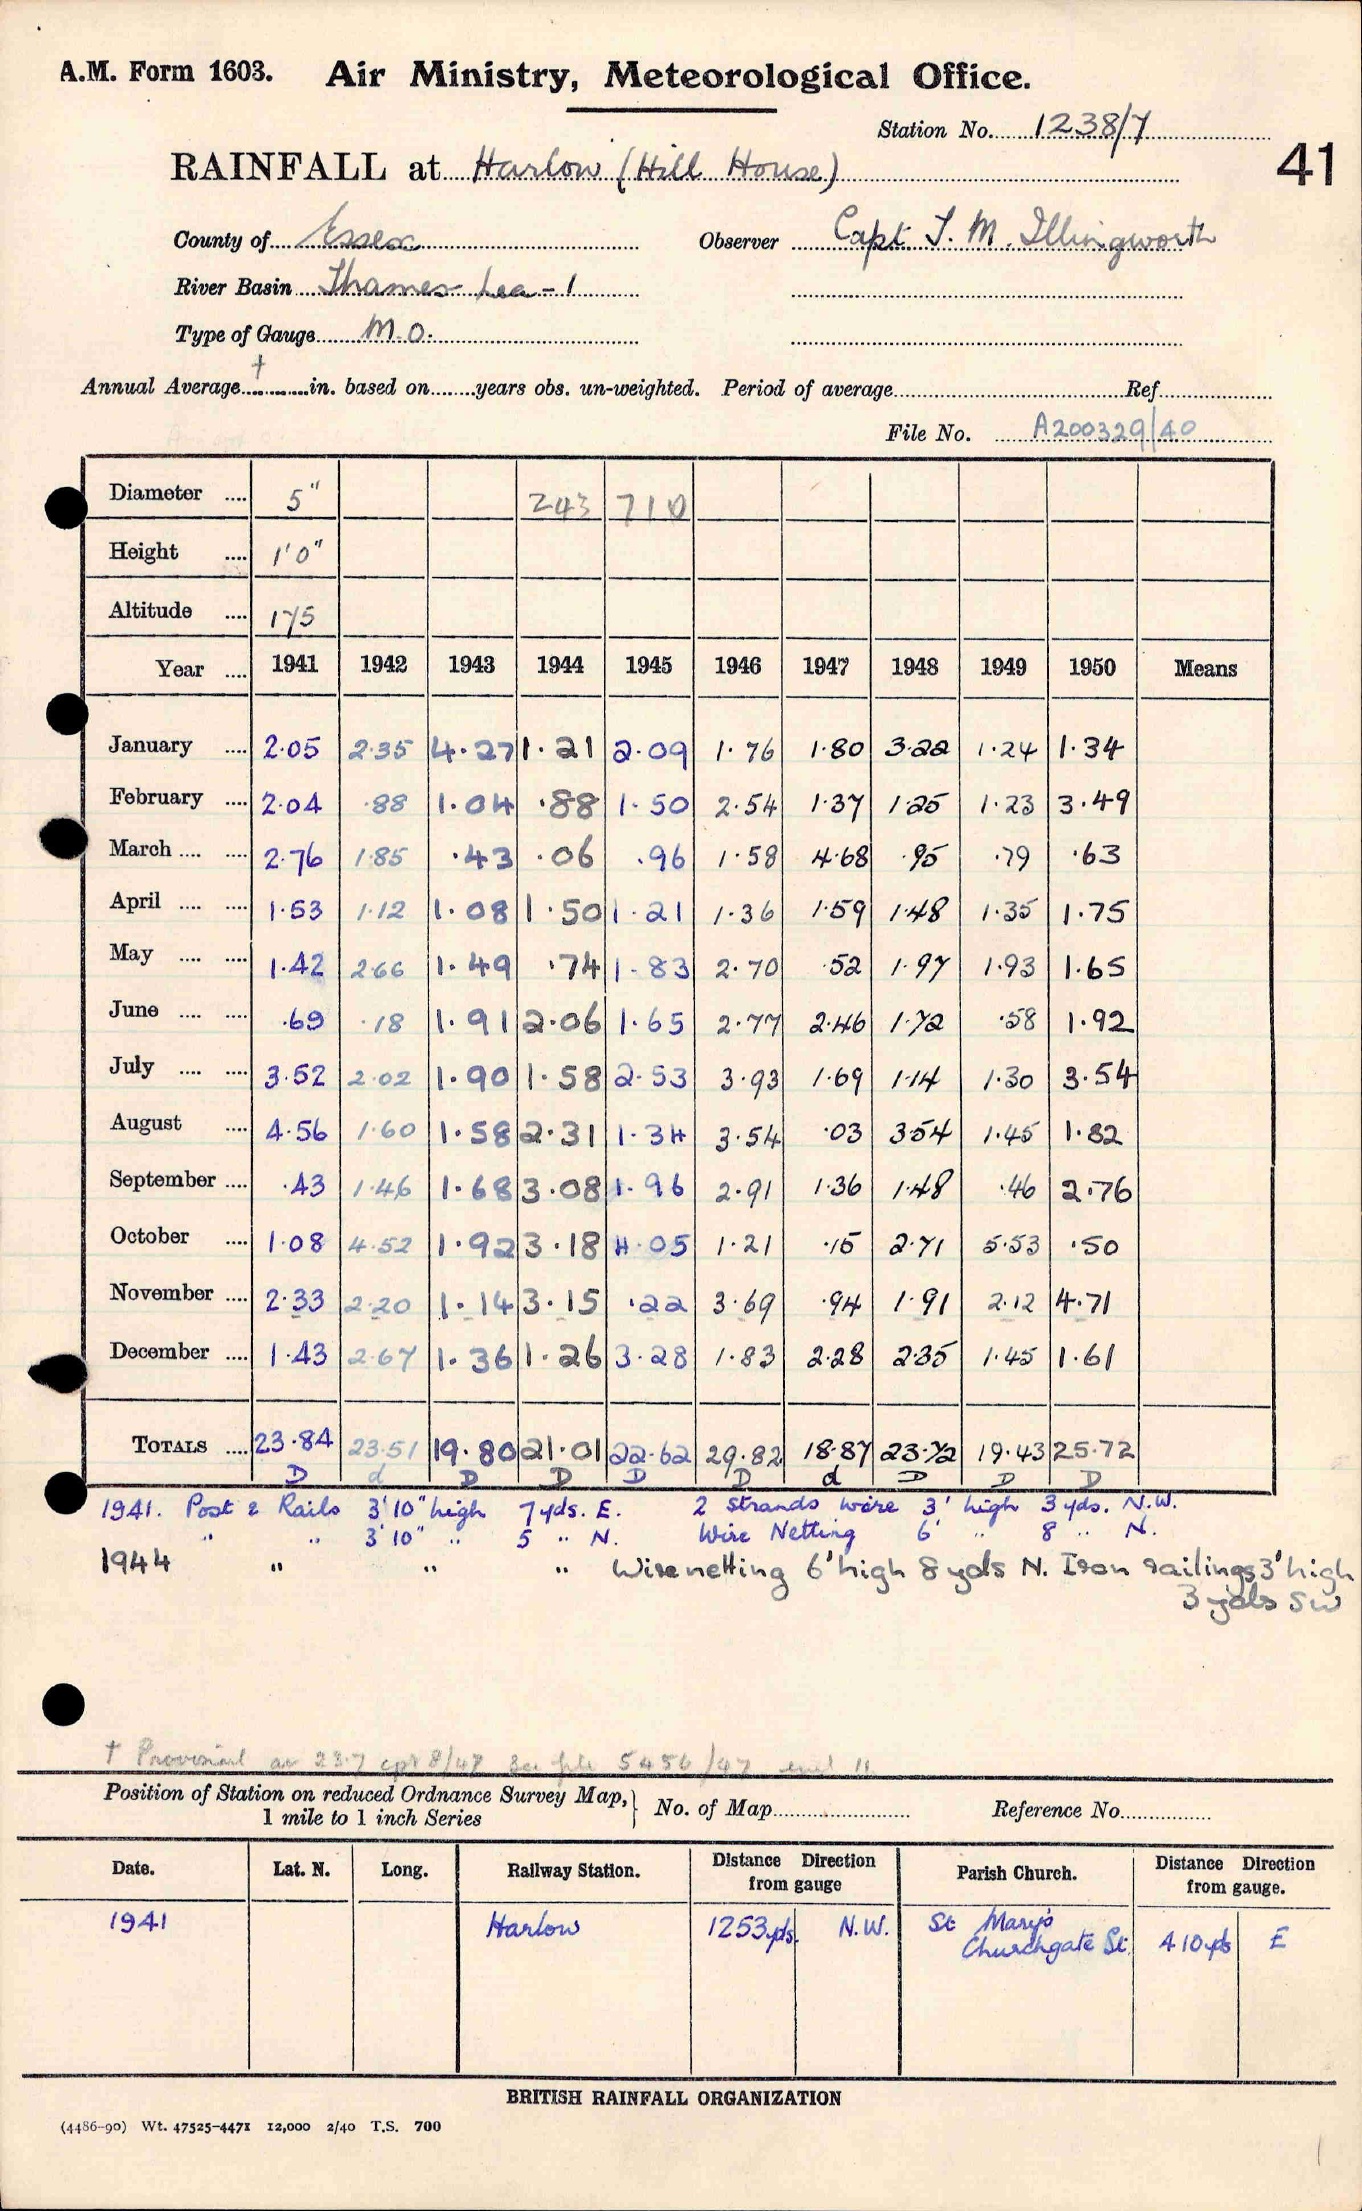 A.M. Form 1603. Air Ministry, Meteorological Office.
Station No. 1238/7
41
RAINFALL at Harlow (Hill House)
County of Essex Observer Capt T. M. Illingworth
River Basin Thames Lea - 1
Type of Gauge M.O.
Annual Average † in. based on years obs. un-weighted. Period of average Ref.
File No. A200329/40
Diameter .... 5" 243 710
Height .... 1'0"
Altitude .... 175
Year .... 1941 1942 1943 1944 1945 1946 1947 1948 1949 1950 Means
January .... 2.05 2.35 4.27 1.21 2.09 1.76 1.80 3.22 1.24 1.34
February .... 2.04 .88 1.04 .88 1.50 2.54 1.37 1.25 1.23 3.49
March .... .... 2.76 1.85 .43 .06 .96 1.58 4.68 .95 .79 .63
April .... .... 1.53 1.12 1.08 1.50 1.21 1.36 1.59 1.48 1.35 1.75
May .... .... 1.42 2.66 1.49 .74 1.83 2.70 .52 1.97 1.93 1.65
June .... .... .69 .18 1.91 2.06 1.65 2.77 2.46 1.72 .58 1.92
July .... .... 3.52 2.02 1.90 1.58 2.53 3.93 1.69 1.14 1.30 3.54
August .... 4.56 1.60 1.58 2.31 1.34 3.54 .03 3.54 1.45 1.82
September .... .43 1.46 1.68 3.08 1.96 2.91 1.36 1.48 .46 2.76
October .... 1.08 4.52 1.92 3.18 4.05 1.21 .15 2.71 5.53 .50
November .... 2.33 2.20 1.14 3.15 .22 3.69 .94 1.91 2.12 4.71
December .... 1.43 2.67 1.36 1.26 3.28 1.83 2.28 2.35 1.45 1.61
TOTALS .... 23.84 23.51 19.80 21.01 22.62 29.82 18.87 23.72 19.43 25.72
D d D D D D d D D D
1941. Post & Rails 3'10" high 7 yds. E. 2 Strands wire 3' high 3 yds. N.W.
" " 3'10" " 5 " N. Wire Netting 6' " 8 " N.
1944 " " " Wire netting 6' high 8 yds N. Iron railings 3' high
3 yds SW
† Provisional av 23.7 8/47 See file 5456/47 encl 11
Position of Station on reduced Ordnance Survey Map, } No. of Map Reference No.
1 mile to 1 inch Series
Date. Lat. N. Long. Railway Station. Distance Direction from gauge Parish Church. Distance Direction from gauge.
1941 Harlow 1253 yds. N.W. St Mary's Churchgate St. 410 yds E
BRITISH RAINFALL ORGANIZATION
(4486-90) Wt. 47525-4471 12,000 2/40 T.S. 700